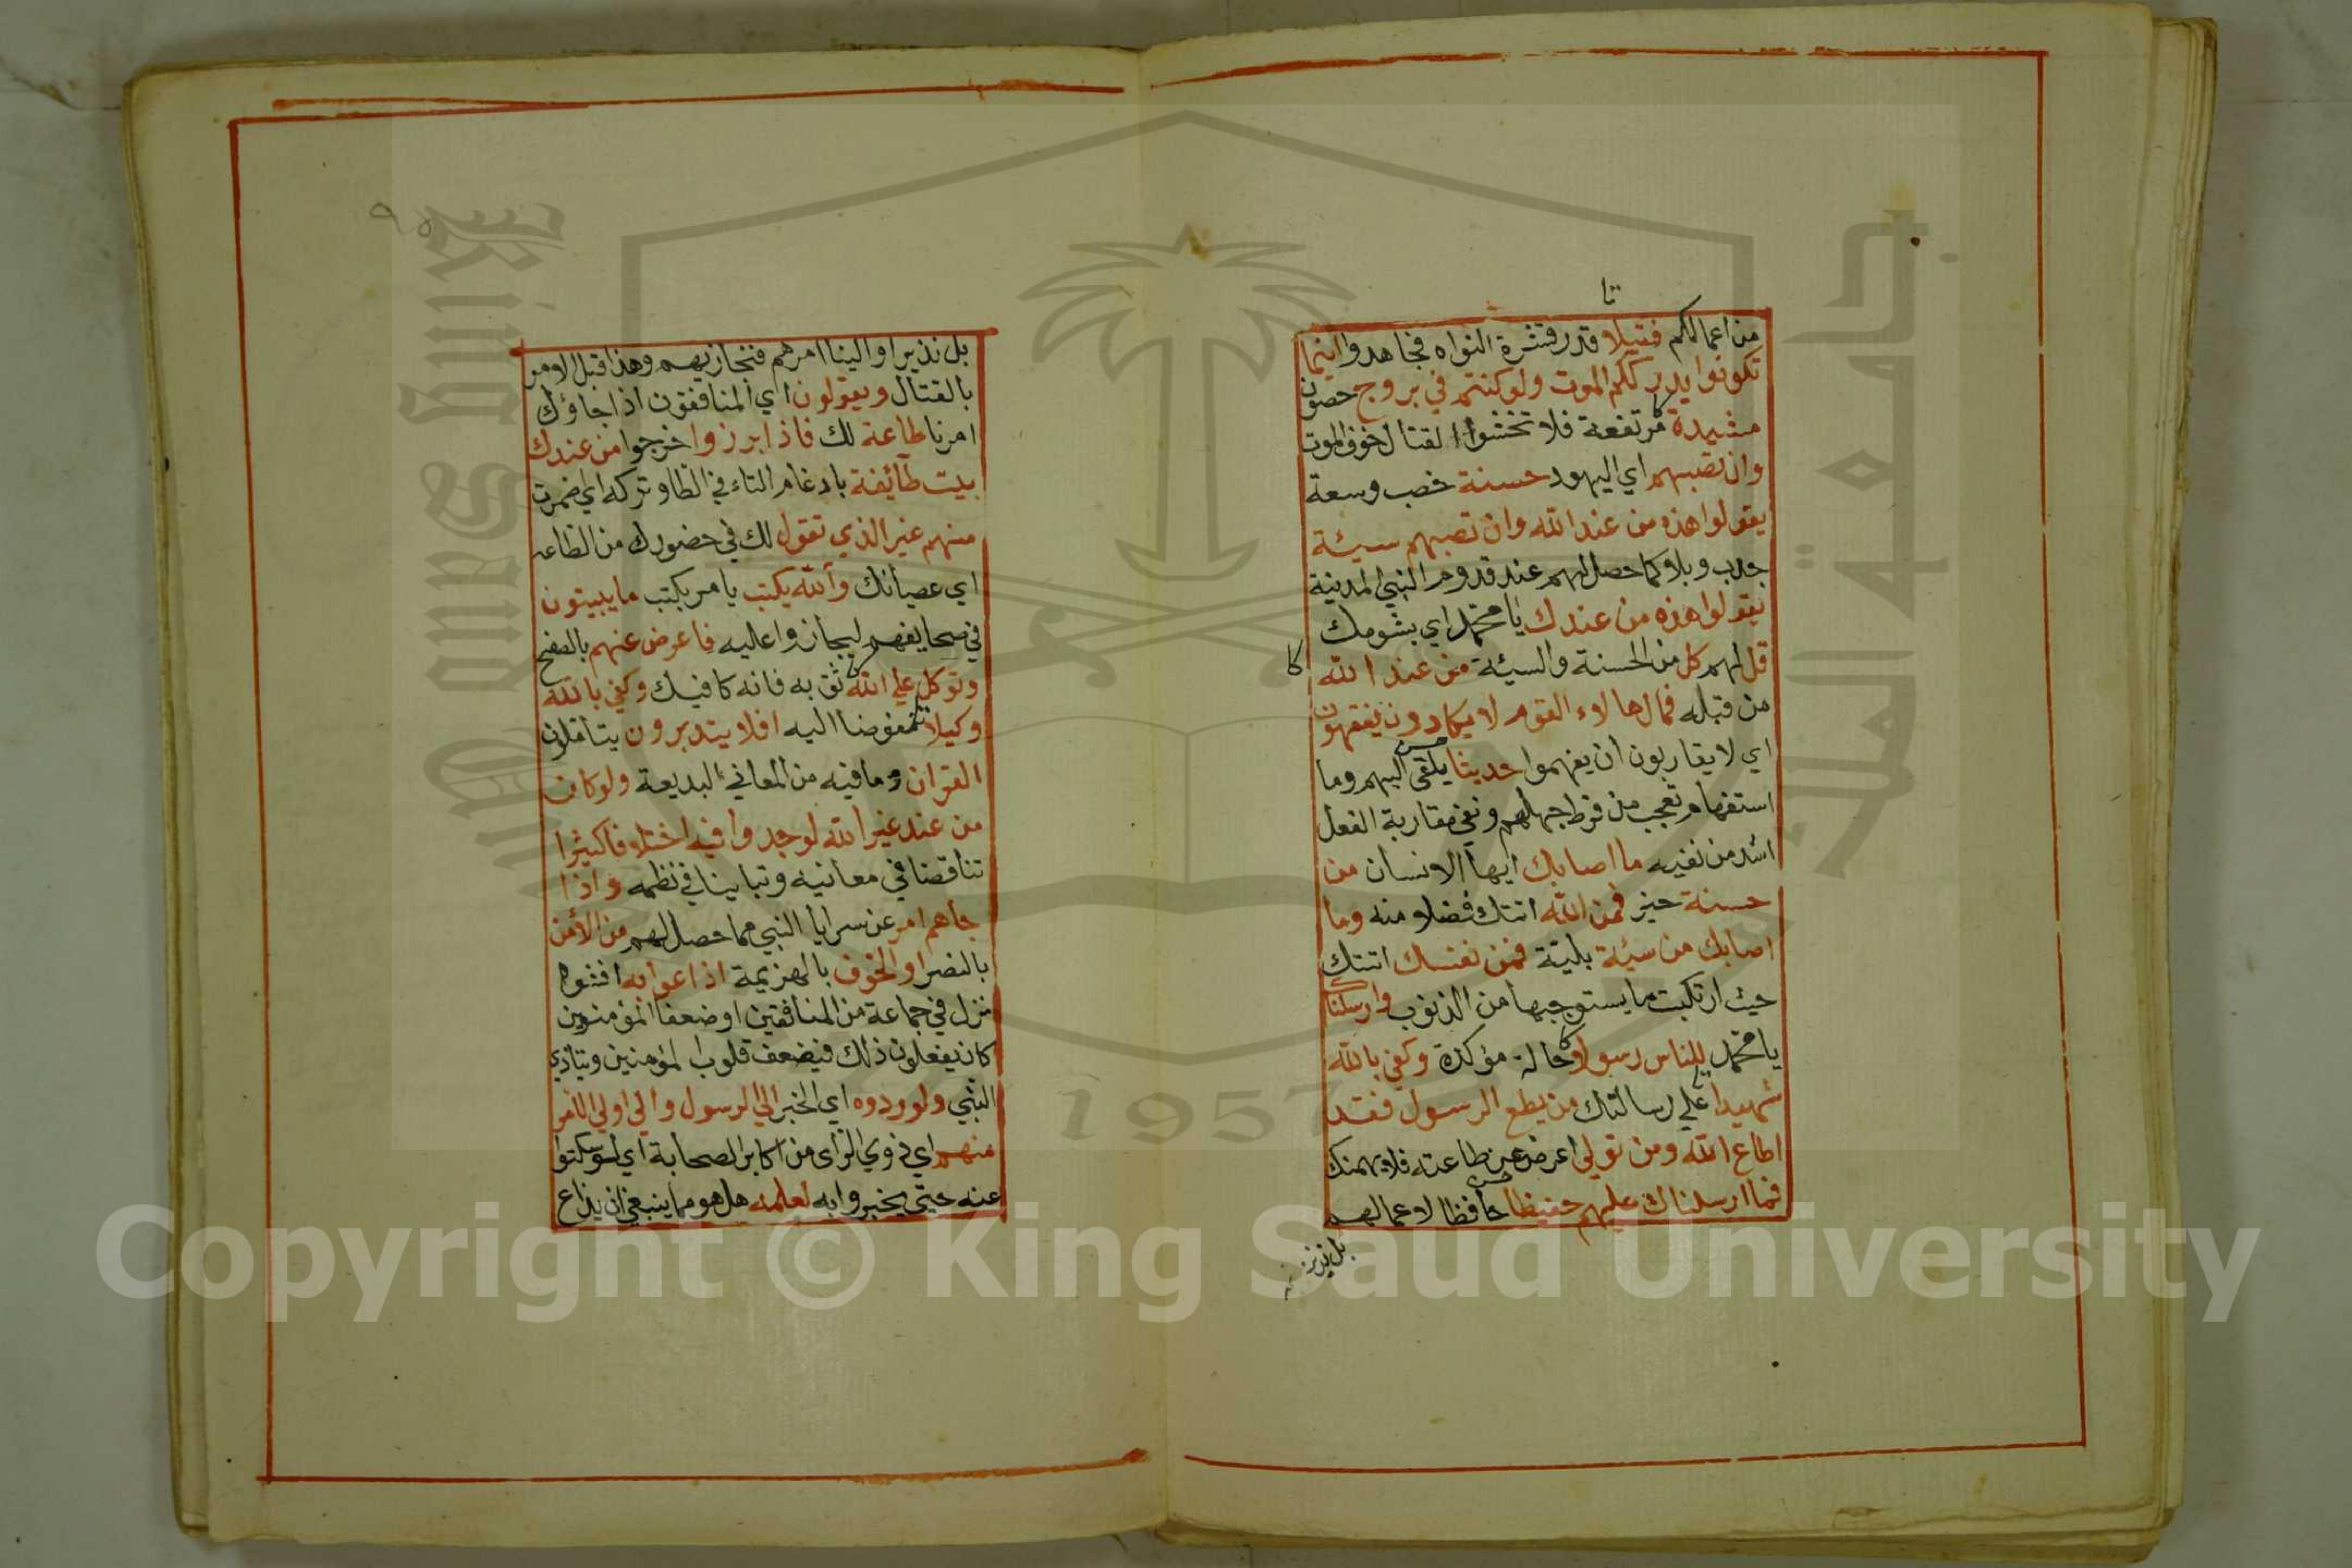 تا
من اعمالكم فتيلا قدر قشرة النواه فجاهدوا اينما
تكونوا يدرككم الموت ولوكنتم في بروج حصون
مشيدة مرتفعة فلا تخشوا القتال خوف الموت
وان تصبهم اي اليهود حسنة خصب وسعة
يقولوا هذه من عند الله وان تصبهم سيئة
جدب وبلا كما حصل لهم عند قدوم النبي المدينة
يقولوا هذه من عندك يا محمد اي بشومك
قل لهم كل من الحسنة والسيئة من عند الله
كا
من قبله فمال هالاء القوم لا يكادون يفقهون
اي لا يقاربون ان يفهموا حديثا يلقي اليهم وما
استفهام تعجب من فرط جهلهم ونفي مقاربة الفعل
اشد من نفيه ما اصابك ايها الانسان من
حسنة خير فمن الله اتتك فضلا منه وما
اصابك من سيئة بلية فمن نفسك اتتك
حيث ارتكبت ما يستوجبها من الذنوب وارسلناك
يا محمد للناس رسولا حال مؤكدة وكفي بالله
شهيدا علي رسالتك من يطع الرسول فقد
اطاع الله ومن تولي اعرض عن طاعته فلا يهمنك
فما ارسلناك عليهم حفيظا حافظا لاعمالهم
بل نذيرا
٩٥
بل نذيرا والينا امرهم فنجازيهم وهذا قبل الامر
بالقتال ويقولون اي المنافقون اذا جاؤك
امرنا طاعة لك فاذا برزوا خرجوا من عندك
بيت طآئفة بادغام التاء في الطا وتركه اي اضمرت
منهم غير الذي تقول لك في حضورك من الطاعه
اي عصيانك والله يكتب يامر بكتب ما يبيتون
في صحايفهم ليجازوا عليه فاعرض عنهم بالصفح
وتوكل علي الله ثق به فانه كافيك وكفي بالله
وكيلا مفوضا اليه افلا يتدبرون يتاملون
القران وما فيه من المعاني البديعة ولوكان
من عند غير الله لوجدوا فيه اختلافا كثيرا
تناقضا في معانيه وتباينا في نظمه واذا
جاهم امر عن سرايا النبي مما حصل لهم من الأمن
بالنصر او الخوف بالهزيمة اذاعوا به افشوه
نزل في جماعة من المنافقين او ضعفا المؤمنين
كان يفعلون ذلك فيضعف قلوب المؤمنين ويتاذي
النبي ولو ردوه اي الخبر الي الرسول والي اولي الامر
منهم اي ذوي الراي من اكابر الصحابة اي لو سكتوا
عنه حتي يخبروا به لعلمه هل هو مما ينبغي ان يذاع
جامعة الملك
King Saud
1957
Copyright © King Saud University